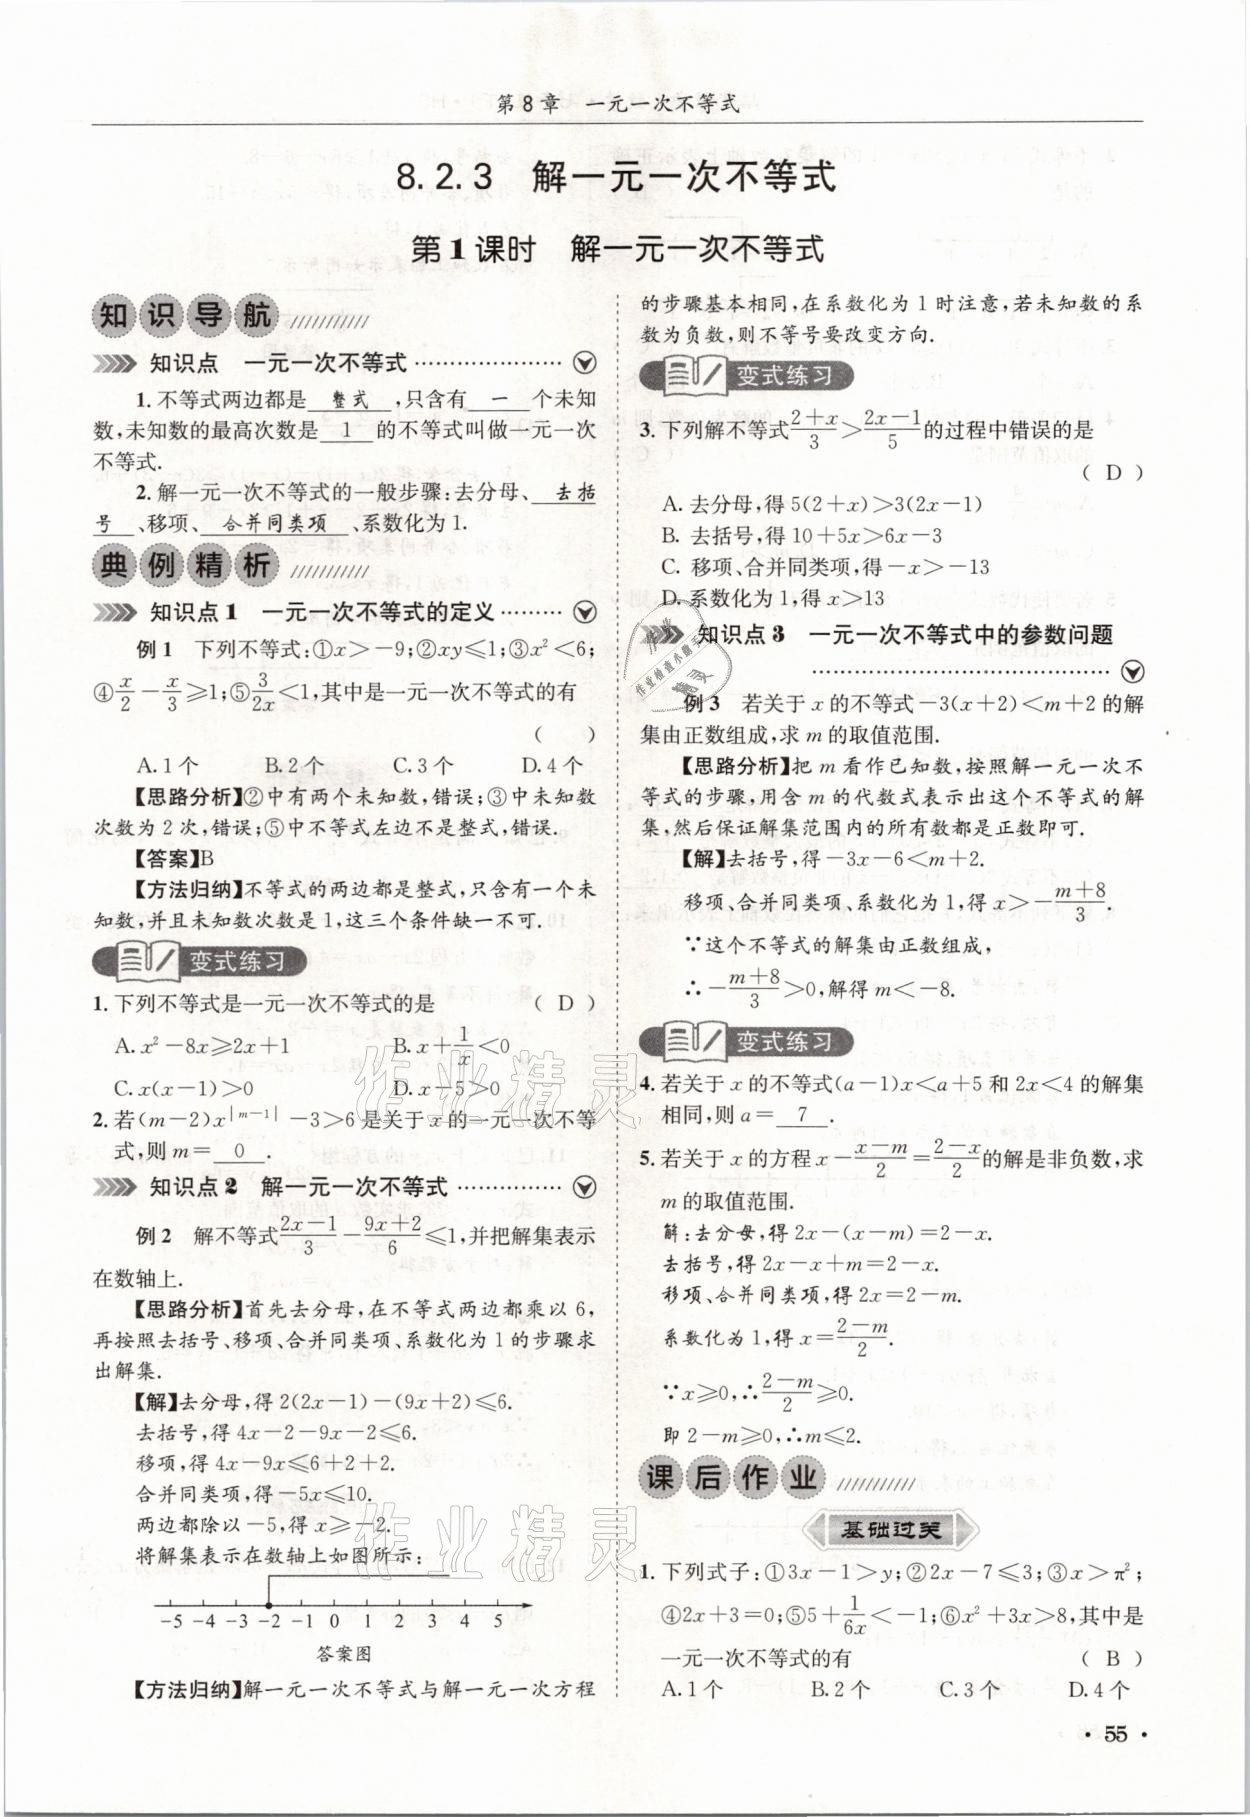 第8章　一元一次不等式
8.2.3　解一元一次不等式
第1课时　解一元一次不等式
知识导航
知识点　一元一次不等式
1.不等式两边都是 整式 ,只含有 一 个未知
数,未知数的最高次数是 1 的不等式叫做一元一次
不等式.
2.解一元一次不等式的一般步骤:去分母、 去括
号 、移项、 合并同类项 、系数化为1.
典例精析
知识点1　一元一次不等式的定义
例1　下列不等式:①x>-9;②xy≤1;③x²<6;
④x/2-x/3≥1;⑤3/2x<1,其中是一元一次不等式的有
(　　)
A.1个　B.2个　C.3个　D.4个
【思路分析】②中有两个未知数,错误;③中未知数
次数为2次,错误;⑤中不等式左边不是整式,错误.
【答案】B
【方法归纳】不等式的两边都是整式,只含有一个未
知数,并且未知数次数是1,这三个条件缺一不可.
变式练习
1.下列不等式是一元一次不等式的是　( D )
A.x²-8x≥2x+1　B.x+1/x<0
C.x(x-1)>0　D.x-5>0
2.若(m-2)x^|m-1|-3>6是关于x的一元一次不等
式,则m= 0 .
知识点2　解一元一次不等式
例2　解不等式(2x-1)/3-(9x+2)/6≤1,并把解集表示
在数轴上.
【思路分析】首先去分母,在不等式两边都乘以6,
再按照去括号、移项、合并同类项、系数化为1的步骤求
出解集.
【解】去分母,得2(2x-1)-(9x+2)≤6.
去括号,得4x-2-9x-2≤6.
移项,得4x-9x≤6+2+2.
合并同类项,得-5x≤10.
两边都除以-5,得x≥-2.
将解集表示在数轴上如图所示:
-5 -4 -3 -2 -1 0 1 2 3 4 5
答案图
【方法归纳】解一元一次不等式与解一元一次方程
的步骤基本相同,在系数化为1时注意,若未知数的系
数为负数,则不等号要改变方向.
变式练习
3.下列解不等式(2+x)/3>(2x-1)/5的过程中错误的是
( D )
A.去分母,得5(2+x)>3(2x-1)
B.去括号,得10+5x>6x-3
C.移项、合并同类项,得-x>-13
D.系数化为1,得x>13
知识点3　一元一次不等式中的参数问题
例3　若关于x的不等式-3(x+2)<m+2的解
集由正数组成,求m的取值范围.
【思路分析】把m看作已知数,按照解一元一次不
等式的步骤,用含m的代数式表示出这个不等式的解
集,然后保证解集范围内的所有数都是正数即可.
【解】去括号,得-3x-6<m+2.
移项、合并同类项、系数化为1,得x>-(m+8)/3.
∵这个不等式的解集由正数组成,
∴-(m+8)/3>0,解得m<-8.
变式练习
4.若关于x的不等式(a-1)x<a+5和2x<4的解集
相同,则a= 7 .
5.若关于x的方程x-(x-m)/2=(2-x)/2的解是非负数,求
m的取值范围.
解:去分母,得2x-(x-m)=2-x.
去括号,得2x-x+m=2-x.
移项、合并同类项,得2x=2-m.
系数化为1,得x=(2-m)/2.
∵x≥0,∴(2-m)/2≥0.
即2-m≥0,∴m≤2.
课后作业
基础过关
1.下列式子:①3x-1>y;②2x-7≤3;③x>π²;
④2x+3=0;⑤5+1/6x<-1;⑥x²+3x>8,其中是
一元一次不等式的有　( B )
A.1个　B.2个　C.3个　D.4个
· 55 ·
作业精灵
作业精灵